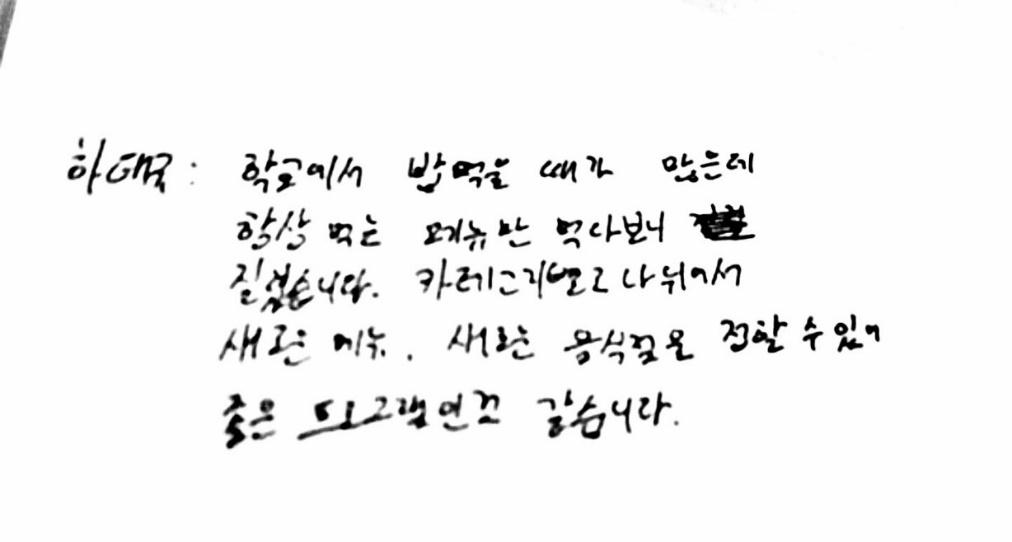 하태욱: 학교에서 밥먹을 때가 많은데
항상 먹는 메뉴만 먹다보니
질렸습니다. 카테고리별로 나뉘어서
새로운 메뉴, 새로운 음식점을 접할 수 있어
좋은 프로그램인것 같습니다.